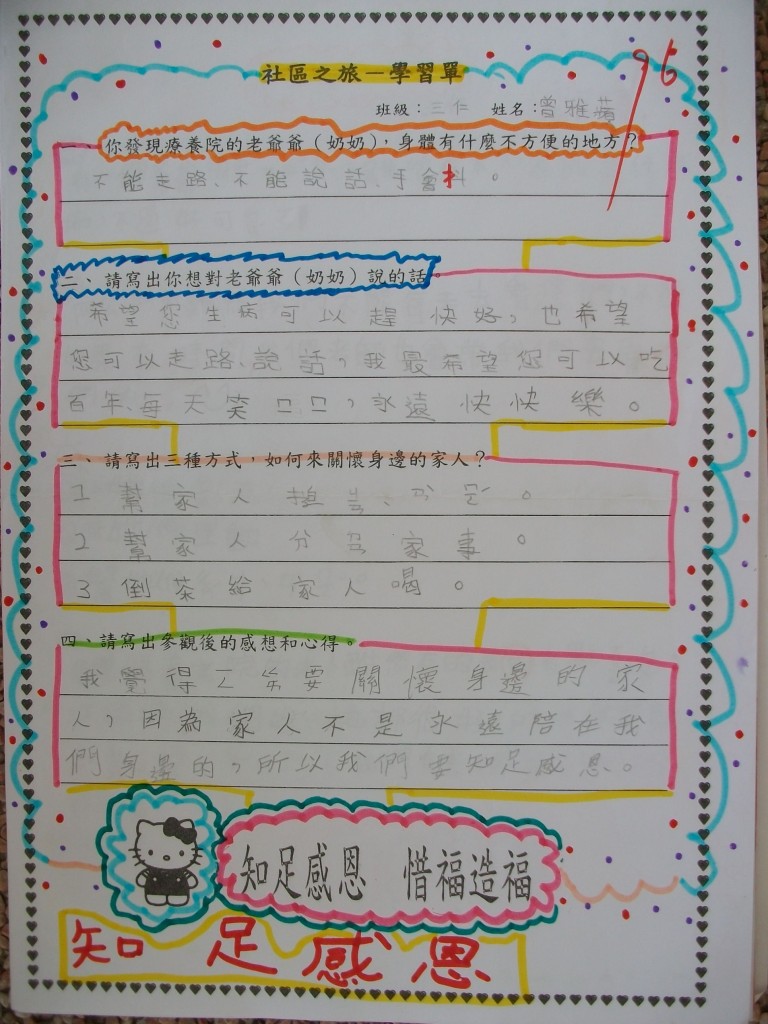 社區之旅－學習單
96
班級：三仁 姓名：曾雅蘋
一、你發現療養院的老爺爺（奶奶），身體有什麼不方便的地方？
不能走路、不能說話、手會抖。
二、請寫出你想對老爺爺（奶奶）說的話。
希望您生病可以趕快好，也希望
您可以走路、說話，我最希望您可以吃
百年、每天笑口口，永遠快快樂。
三、請寫出三種方式，如何來關懷身邊的家人？
1 幫家人搥
2 幫家人分家事。
3 倒茶給家人喝。
四、請寫出參觀後的感想和心得。
我覺得要關懷身邊的家
人，因為家人不是永遠陪在我
們身邊的，所以我們要知足感恩。
知足感恩 惜福造福
知足感恩